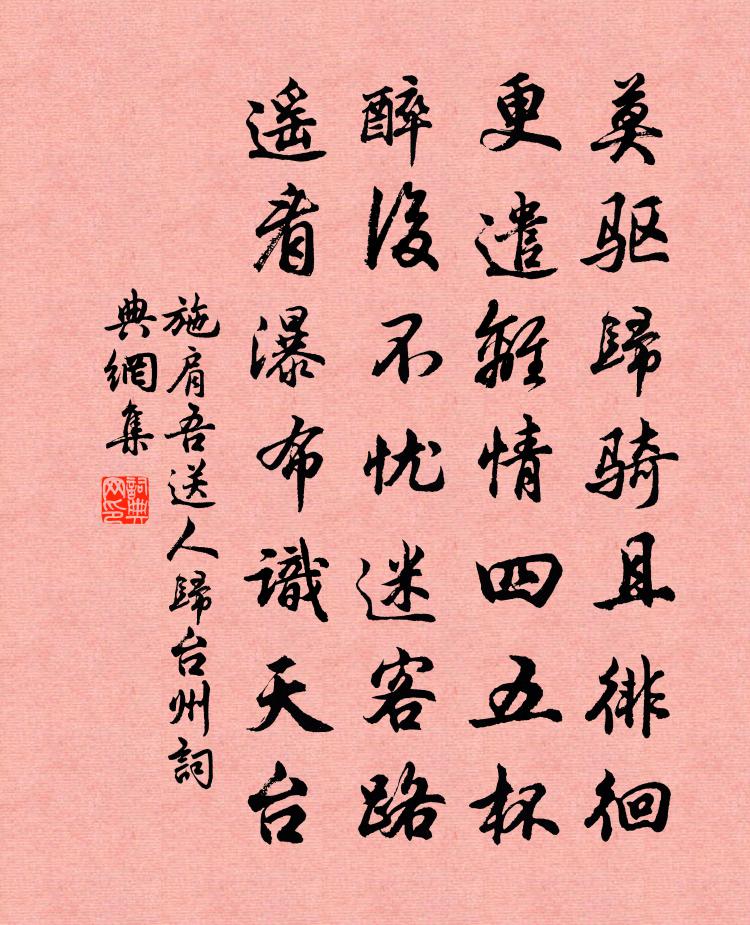 莫驱歸骑且徘徊
更遣離情四五杯
醉後不忧迷客路
遥看瀑布識天台
施肩吾送人歸台州詞
典網集
詞典网印